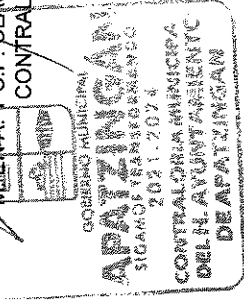 CONTRA
GOBIERNO MUNICIPAL
APATZINGÁN
SIGAMOS TRANSFORMANDO
2021-2024
CONTRALORÍA MUNICIPAL
DEL H. AYUNTAMIENTO
DE APATZINGÁN